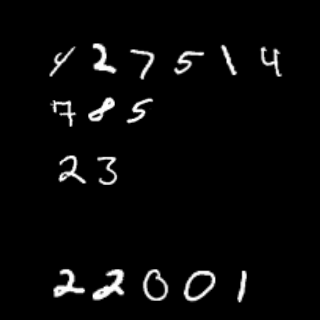 427514
785
23
22001